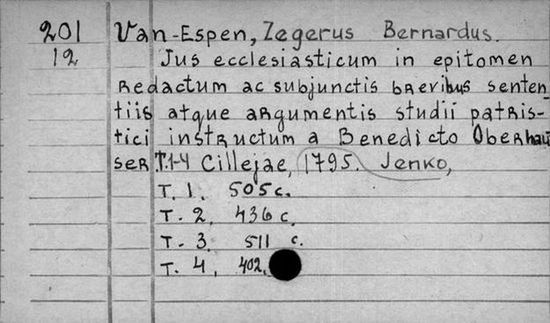 201 Van-Espen, Zegerus Bernardus.
12 Jus ecclesiasticum in epitomen
redactum ac subjunctis brevibus senten
tiis atque argumentis studii patris-
tici instructum a Benedicto Oberhau
ser T.1-4 Cillejae, 1795. Jenko,
T. 1. 505 c.
T. 2. 436 c.
T. 3. 511 c.
T. 4. 402.